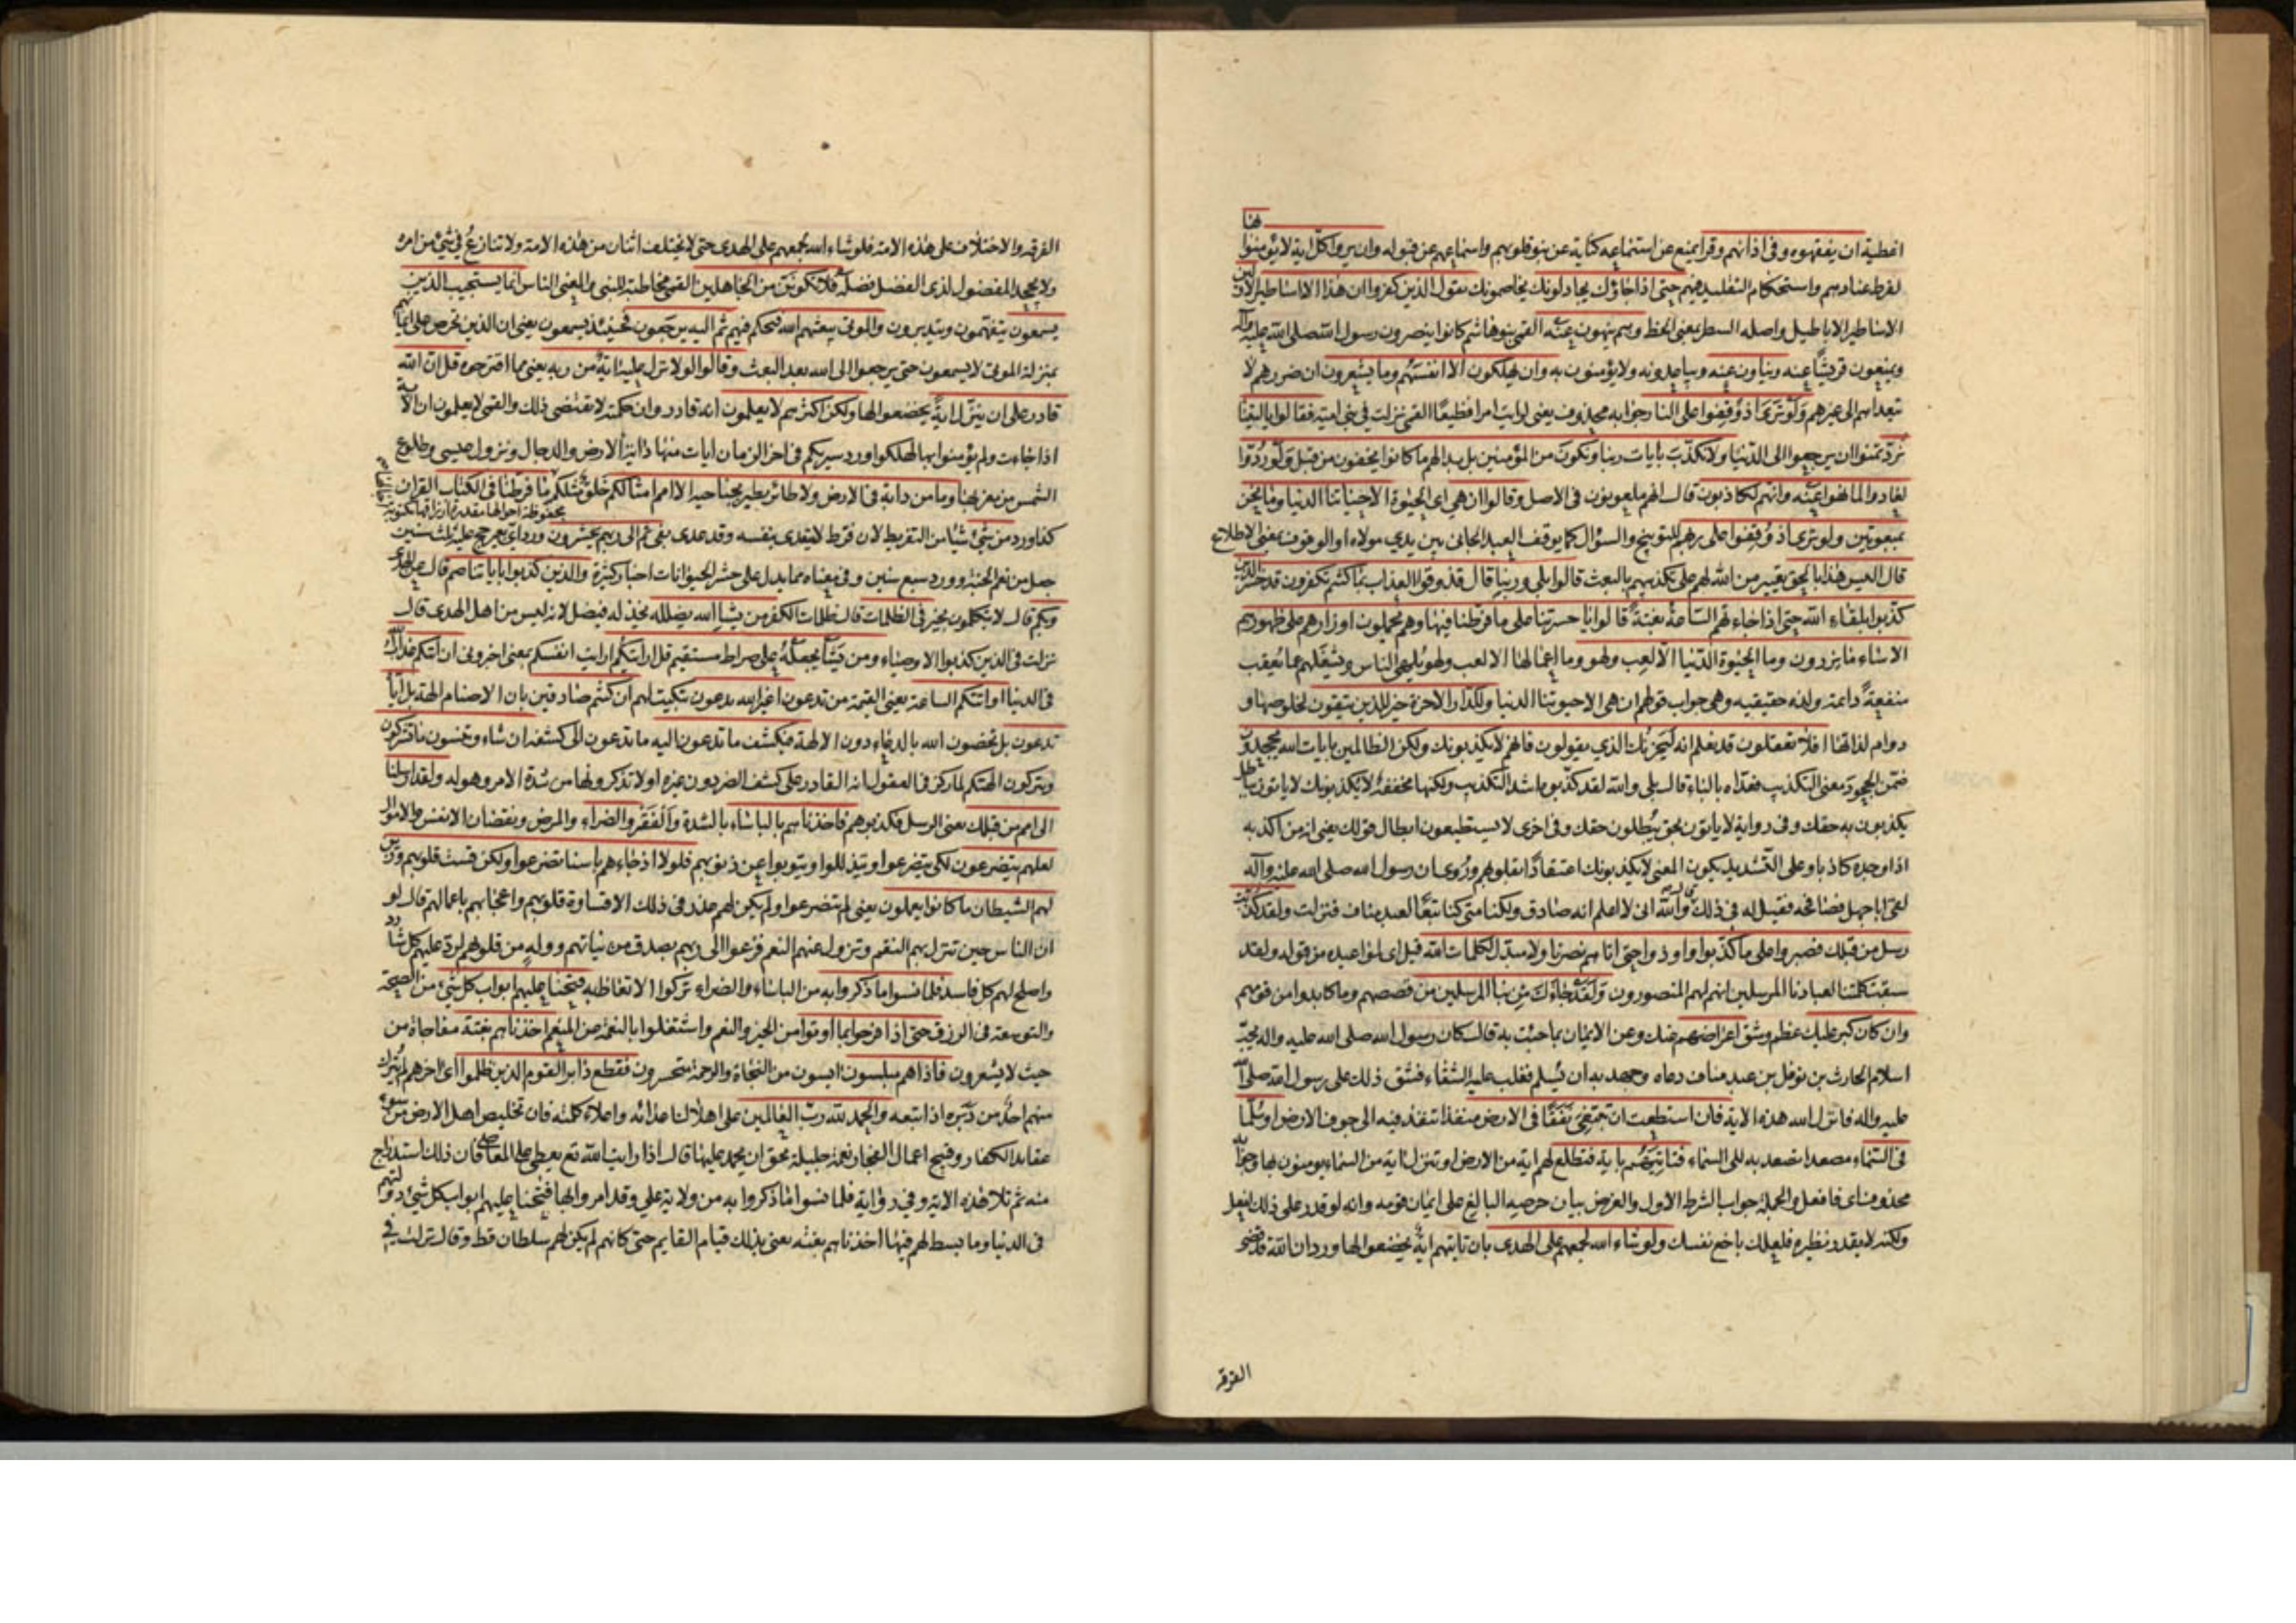 بها
اغطية ان يفقهوه وفى اذانهم وقرا يمنع عن استماعه كناية عن نبو قلوبهم واسماعهم عن قبوله وان يروا كل اية لا يؤمنوا
لفرط عنادهم واستحكام التقليد فيهم حتى اذا جاؤك يجادلونك يخاصمونك يقول الذين كفروا ان هذا الا اساطير الاولين
الاساطير الاباطيل واصله السطر بمعنى الخط وهم ينهون عنه القمى بنو هاشم كانوا ينصرون رسول الله صلى الله عليه واله
ويمنعون قريشا عنه وينأون عنه ويباعدونه ولا يؤمنون به وان يهلكون الا انفسهم وما يشعرون ان ضررهم لا
يتعداهم الى غيرهم ولو ترى اذ وقفوا على النار جوابه محذوف يعنى لرايت امرا فظيعا القمى نزلت فى بنى امية فقالوا يا ليتنا
نرد تمنوا ان يرجعوا الى الدنيا ولا نكذب بايات ربنا ونكون من المؤمنين بل بدا لهم ما كانوا يخفون من قبل ولو ردوا
لعادوا لما نهوا عنه وانهم لكاذبون قال انهم ملعونون فى الاصل وقالوا ان هى اى الحيوة الا حياتنا الدنيا وما نحن
بمبعوثين ولو ترى اذ وقفوا على ربهم للتوبيخ والسؤال كما يوقف العبد الجانى بين يدي مولاه او الوقوف بمعنى الاطلاع
قال اليس هذا بالحق تعيير من الله لهم على تكذيبهم بالبعث قالوا بلى وربنا قال فذوقوا العذاب بما كنتم تكفرون قد خسر الذين
كذبوا بلقاء الله حتى اذا جاءتهم الساعة بغتة قالوا يا حسرتنا على ما فرطنا فيها وهم يحملون اوزارهم على ظهورهم
الا ساء ما يزرون وما الحيوة الدنيا الا لعب ولهو وما اعمالها الا لعب ولهو يلهى الناس ويشغلهم عما يعقب
منفعة دائمة ولذة حقيقية وهى جواب قولهم ان هى الا حيوتنا الدنيا وللدار الاخرة خير للذين يتقون لخلوصها و
دوام لذاتها افلا تعقلون قد نعلم انه ليحزنك الذي يقولون فانهم لا يكذبونك ولكن الظالمين بايات الله يجحدون
ضمن الجحود معنى التكذيب فعداه بالباء قال بلى والله لقد كذبوه اشد التكذيب ولكنها مخففة لا يكذبونك لا ياتون بباطل
يكذبون به حقك وفى رواية لا ياتون بحق يبطلون حقك وفى اخرى لا يستطيعون ابطال قولك يعنى انه من اكذبه
اذا وجده كاذبا وعلى التشديد يكون المعنى لا يكذبونك اعتقادا بقلوبهم وروى ان رسول الله صلى الله عليه واله
لقى ابا جهل فصافحه فقيل له فى ذلك قال والله انى لاعلم انه صادق ولكنا متى كنا تبعا لعبد مناف فنزلت ولقد كذبت
رسل من قبلك فصبروا على ما كذبوا واوذوا حتى اتاهم نصرنا ولا مبدل لكلمات الله قيل اى لمواعيده من قوله ولقد
سبقت كلمتنا لعبادنا المرسلين انهم لهم المنصورون ولقد جاءك من نبا المرسلين من قصصهم وما كابدوا من قومهم
وان كان كبر عليك عظم وشق اعراضهم عنك وعن الايمان بما جئت به قال كان رسول الله صلى الله عليه واله يحب
اسلام الحارث بن نوفل بن عبد مناف دعاه وجهد به ان يسلم فغلب عليه الشقاء فشق ذلك على رسول الله صلى الله
عليه واله فانزل الله هذه الاية فان استطعت ان تبتغى نفقا فى الارض منفذا تنفذ فيه الى جوف الارض او سلما
فى السماء مصعدا تصعد به الى السماء فتاتيهم باية فتطلع لهم اية من الارض او تنزل اية من السماء يؤمنون بها وجوابه
محذوف اى فافعل والجملة جواب الشرط الاول والغرض بيان حرصه البالغ على ايمان قومه وانه لو قدر على ذلك لفعل
ولكنه لا يقدر ونظيره فلعلك باخع نفسك ولو شاء الله لجمعهم على الهدى بان تاتيهم اية يخضعوا لها وورد ان الله قضى
الفرقه
الفرقه والاختلاف على هذه الامة فلو شاء الله لجمعهم على الهدى حتى لا يختلف اثنان من هذه الامة ولا تنازع فى شئ من امره
ولا يجحد المفضول لذى الفضل فضله فلا تكونن من الجاهلين القمى مخاطبة للنبى والمعنى الناس انما يستجيب الذين
يسمعون بتفهمون ويتدبرون والموتى يبعثهم الله فيحكم فيهم ثم اليه يرجعون فحينئذ يسمعون يعنى ان الذين تحرص على ايمانهم
بمنزلة الموتى لا يسمعون حتى يرجعوا الى الله بعد البعث وقالوا لولا نزل عليه اية من ربه يعنى مما اقترحوه قل ان الله
قادر على ان ينزل اية يخضعوا لها ولكن اكثرهم لا يعلمون انه قادر وان حكمته لا تقتضى ذلك والقمى لا يعلمون ان الاية
اذا جاءت ولم يؤمنوا بها لهلكوا وورد سيريكم فى اخر الزمان ايات منها دابة الارض والدجال ونزول عيسى وطلوع
الشمس من مغربها وما من دابة فى الارض ولا طائر يطير بجناحيه الا امم امثالكم خلق مثلكم ما فرطنا فى الكتاب القران
محفوظة احوالها مقدرة ارزاقها مكتوبة
كذا ورد من شئ شيئا من التفريط لان فرط لا يتعدى بنفسه وقد عدى بفى ثم الى ربهم يحشرون ورد اى بعير حج عليه ثلث سنين
جعل من نعم الجنة وورد سبع سنين وفى معناه مما يدل على حشر الحيوانات اخبار كثيرة والذين كذبوا باياتنا صم قال عن الهدى
وبكم قال لا يتكلمون بخير فى الظلمات قال ظلمات الكفر من يشا الله يضلله يخذله فيضل لانه ليس من اهل الهدى قال
نزلت فى الذين كذبوا الاوصياء ومن يشأ يجعله على صراط مستقيم قل ارايتكم ارايت انفسكم بمعنى اخبرونى ان اتيكم عذاب الله
فى الدنيا او اتتكم الساعة يعنى القيمة من تدعون اغير الله تدعون تبكيت لهم ان كنتم صادقين بان الاصنام الهة بل اياه
تدعون بل تخصون الله بالدعاء دون الالهة فيكشف ما تدعون اليه ما تدعون الى كشفه ان شاء وتنسون ما تشركون
وتتركون الهتكم لما ركز فى العقول انه القادر على كشف الضر دون غيره او لا تذكرونها من شدة الامر وهوله ولقد ارسلنا
الى امم من قبلك يعنى الرسل فكذبوهم فاخذناهم بالباساء بالشدة والفقر والضراء والمرض ونقصان الانفس والاموال
لعلهم يتضرعون لكى يتضرعوا ويتذللوا ويتوبوا عن ذنوبهم فلولا اذ جاءهم باسنا تضرعوا ولكن قست قلوبهم وزين
لهم الشيطان ما كانوا يعملون يعنى لم يتضرعوا ولم يكن لهم عذر فى ذلك الا قساوة قلوبهم واعجابهم باعمالهم قال لو
ان الناس حين تنزل بهم النقم وتزول عنهم النعم فزعوا الى ربهم بصدق من نياتهم ووله من قلوبهم لرد عليهم كل شارد
واصلح لهم كل فاسد فلما نسوا ما ذكروا به من الباساء والضراء تركوا الاتعاظ به فتحنا عليهم ابواب كل شئ من الصحة
والتوسعة فى الرزق حتى اذا فرحوا بما اوتوا من الخير والنعم واشتغلوا بالنعمة عن المنعم اخذناهم بغتة مفاجاة من
حيث لا يشعرون فاذا هم مبلسون ايسون من النجاة والرحمة متحسرون فقطع دابر القوم الذين ظلموا اى اخرهم لم يترك
منهم احد من دبره اذا تبعه والحمد لله رب العالمين على اهلاك اعدائه واعلاء كلمته فان تخليص اهل الارض من سوء
عقايد الكفار وقبيح اعمال الفجار نعمة جليلة يحق ان يحمد عليها قال اذا رايت الله تع يعطى على المعاصى فان ذلك استدراج
منه ثم تلا هذه الاية وفى رواية فلما نسوا ما ذكروا به من ولاية على وقد امروا بها فتحنا عليهم ابواب كل شئ دولتهم
فى الدنيا وما بسط لهم فيها اخذناهم بغتة يعنى بذلك قيام القايم حتى كانهم لم يكن لهم سلطان قط وقال نزلت فى